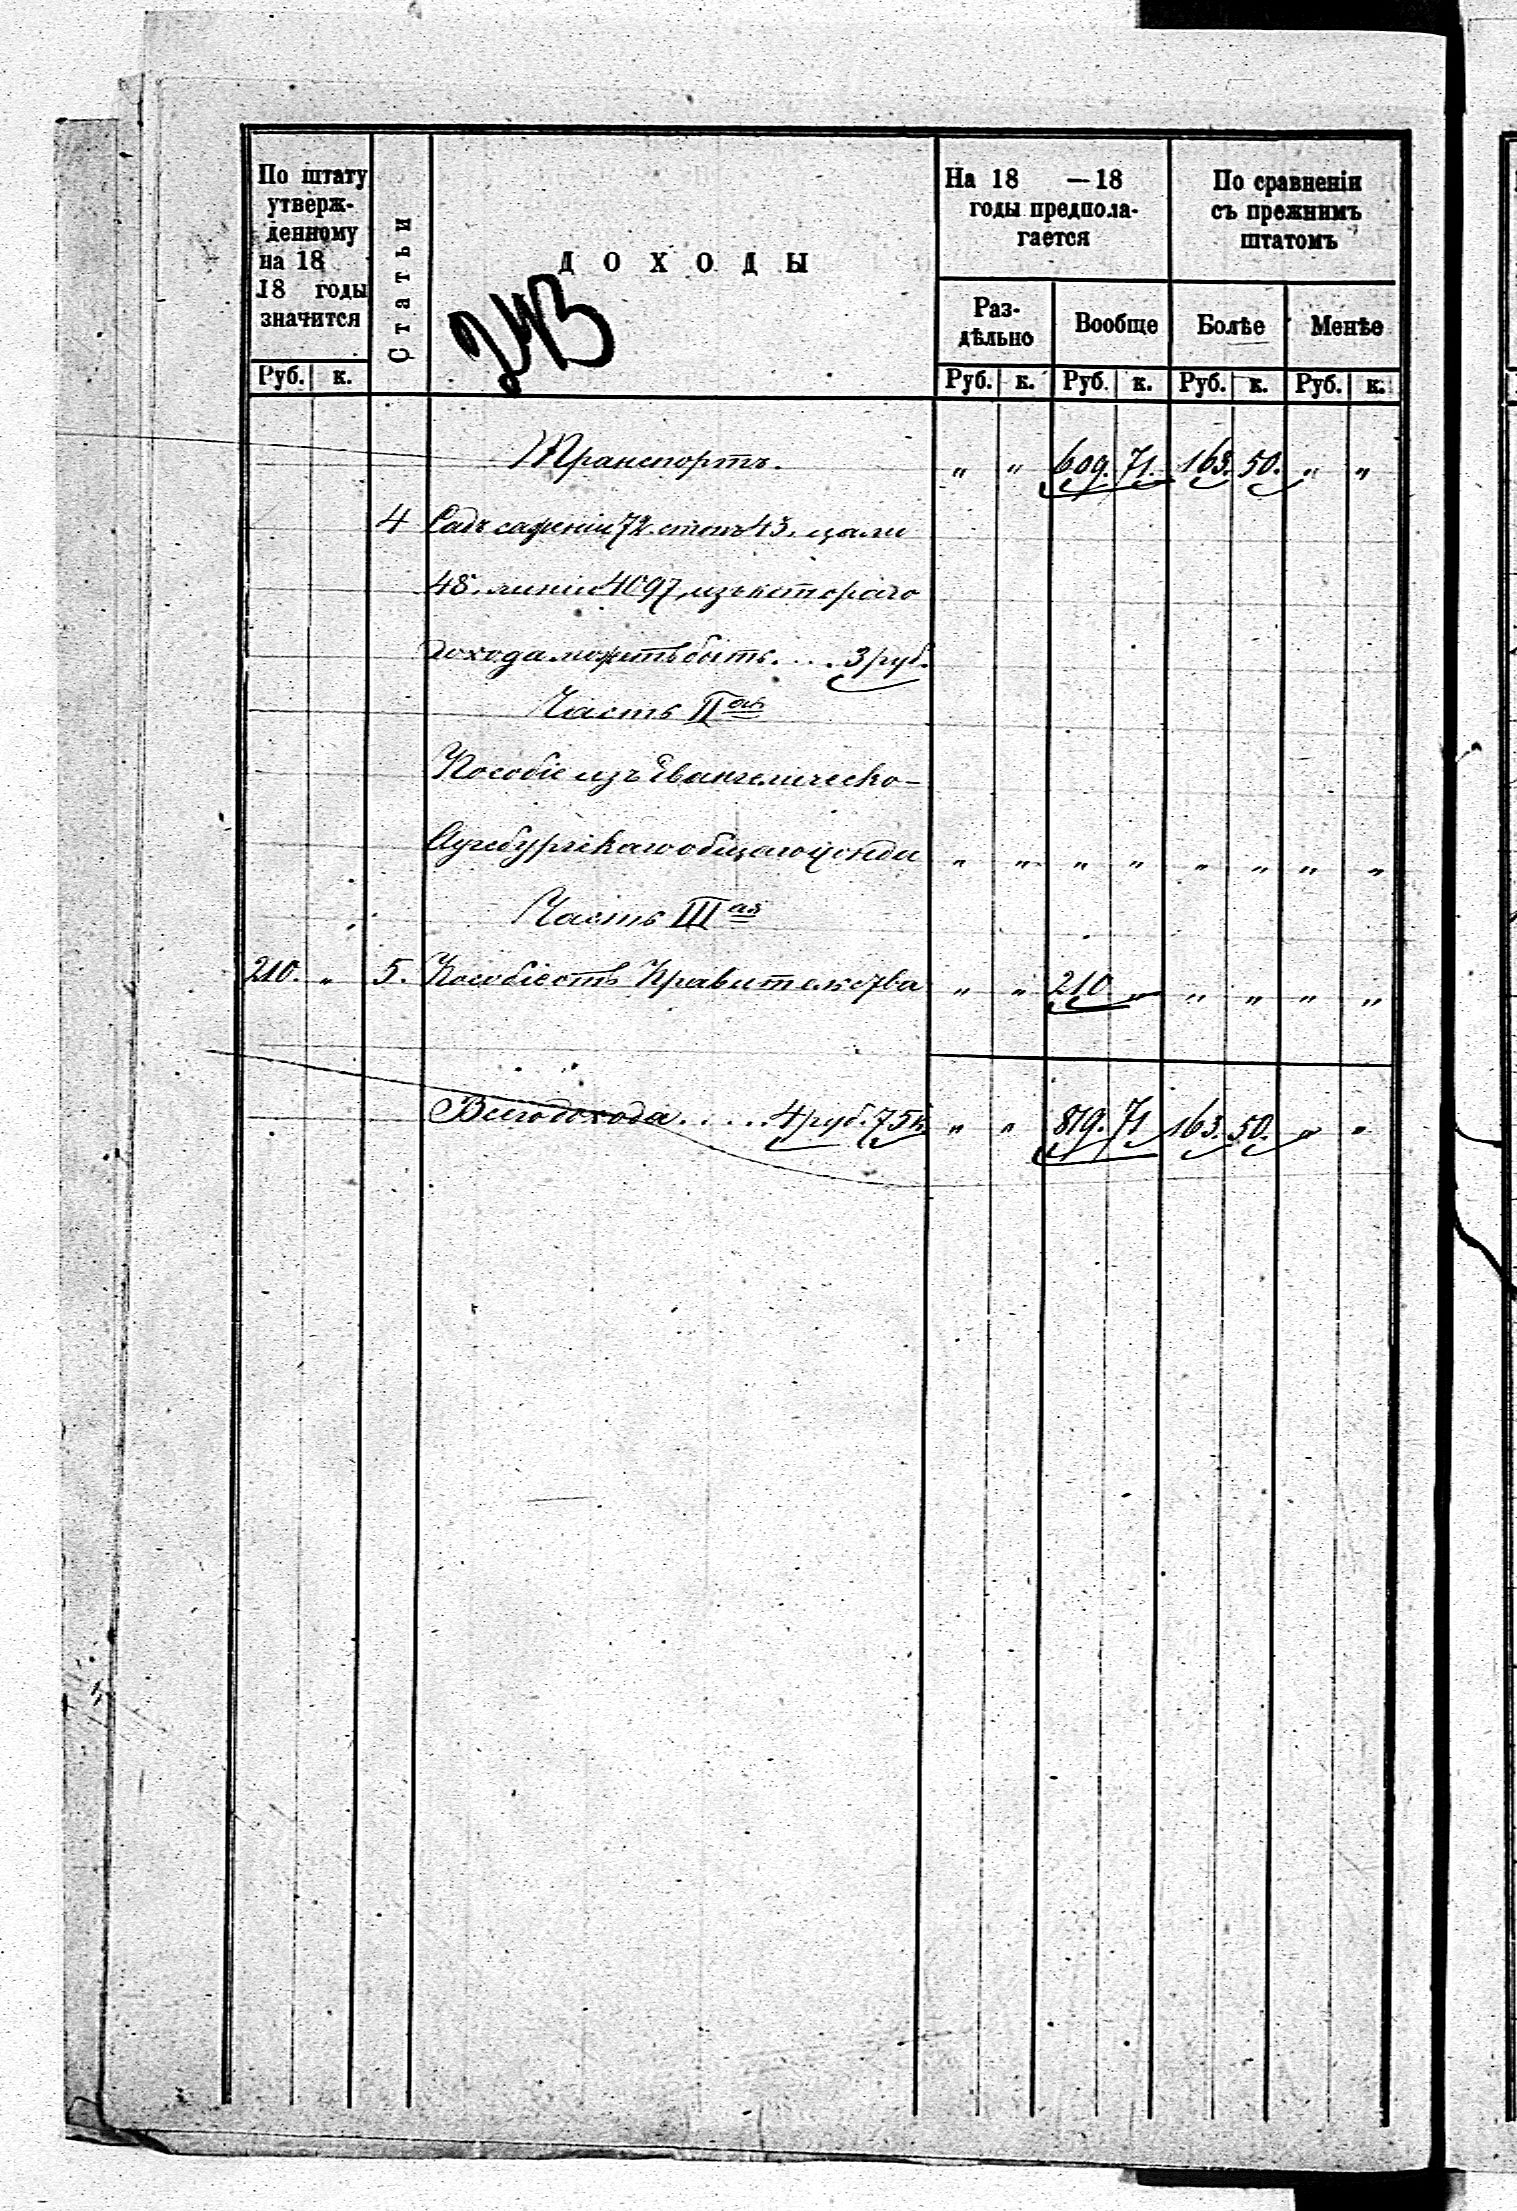 По штату утверж-
денному
на 18
18 годы
значится
Статьи
ДОХОДЫ
243
На 18 —18
годы предпола-
гается
По сравненіи
съ прежнимъ
штатомъ
Раз-
дѣльно
Вообще
Болѣе
Менѣе
Руб. к. Руб. к. Руб. к. Руб. к. Руб. к.
Транспортъ. „ „ 609. 71. 163. 50. „ „
4 Садъ сажени 72. стопъ 43. цали
48. линіи 4097, изъ котораго
дохода можетъ быть. . . . 3 руб.
Часть II ая
Пособіе изъ Евангелическо-
Аугсбургскаго общаго фонда „ „ „ „ „ „ „ „
Часть III ая
210. „ 5. Пособіе отъ Правительства „ „ 210 „ „ „ „ „
Всего дохода. . . . . 4 руб. 75 к. „ „ 819. 71 163. 50. „ „